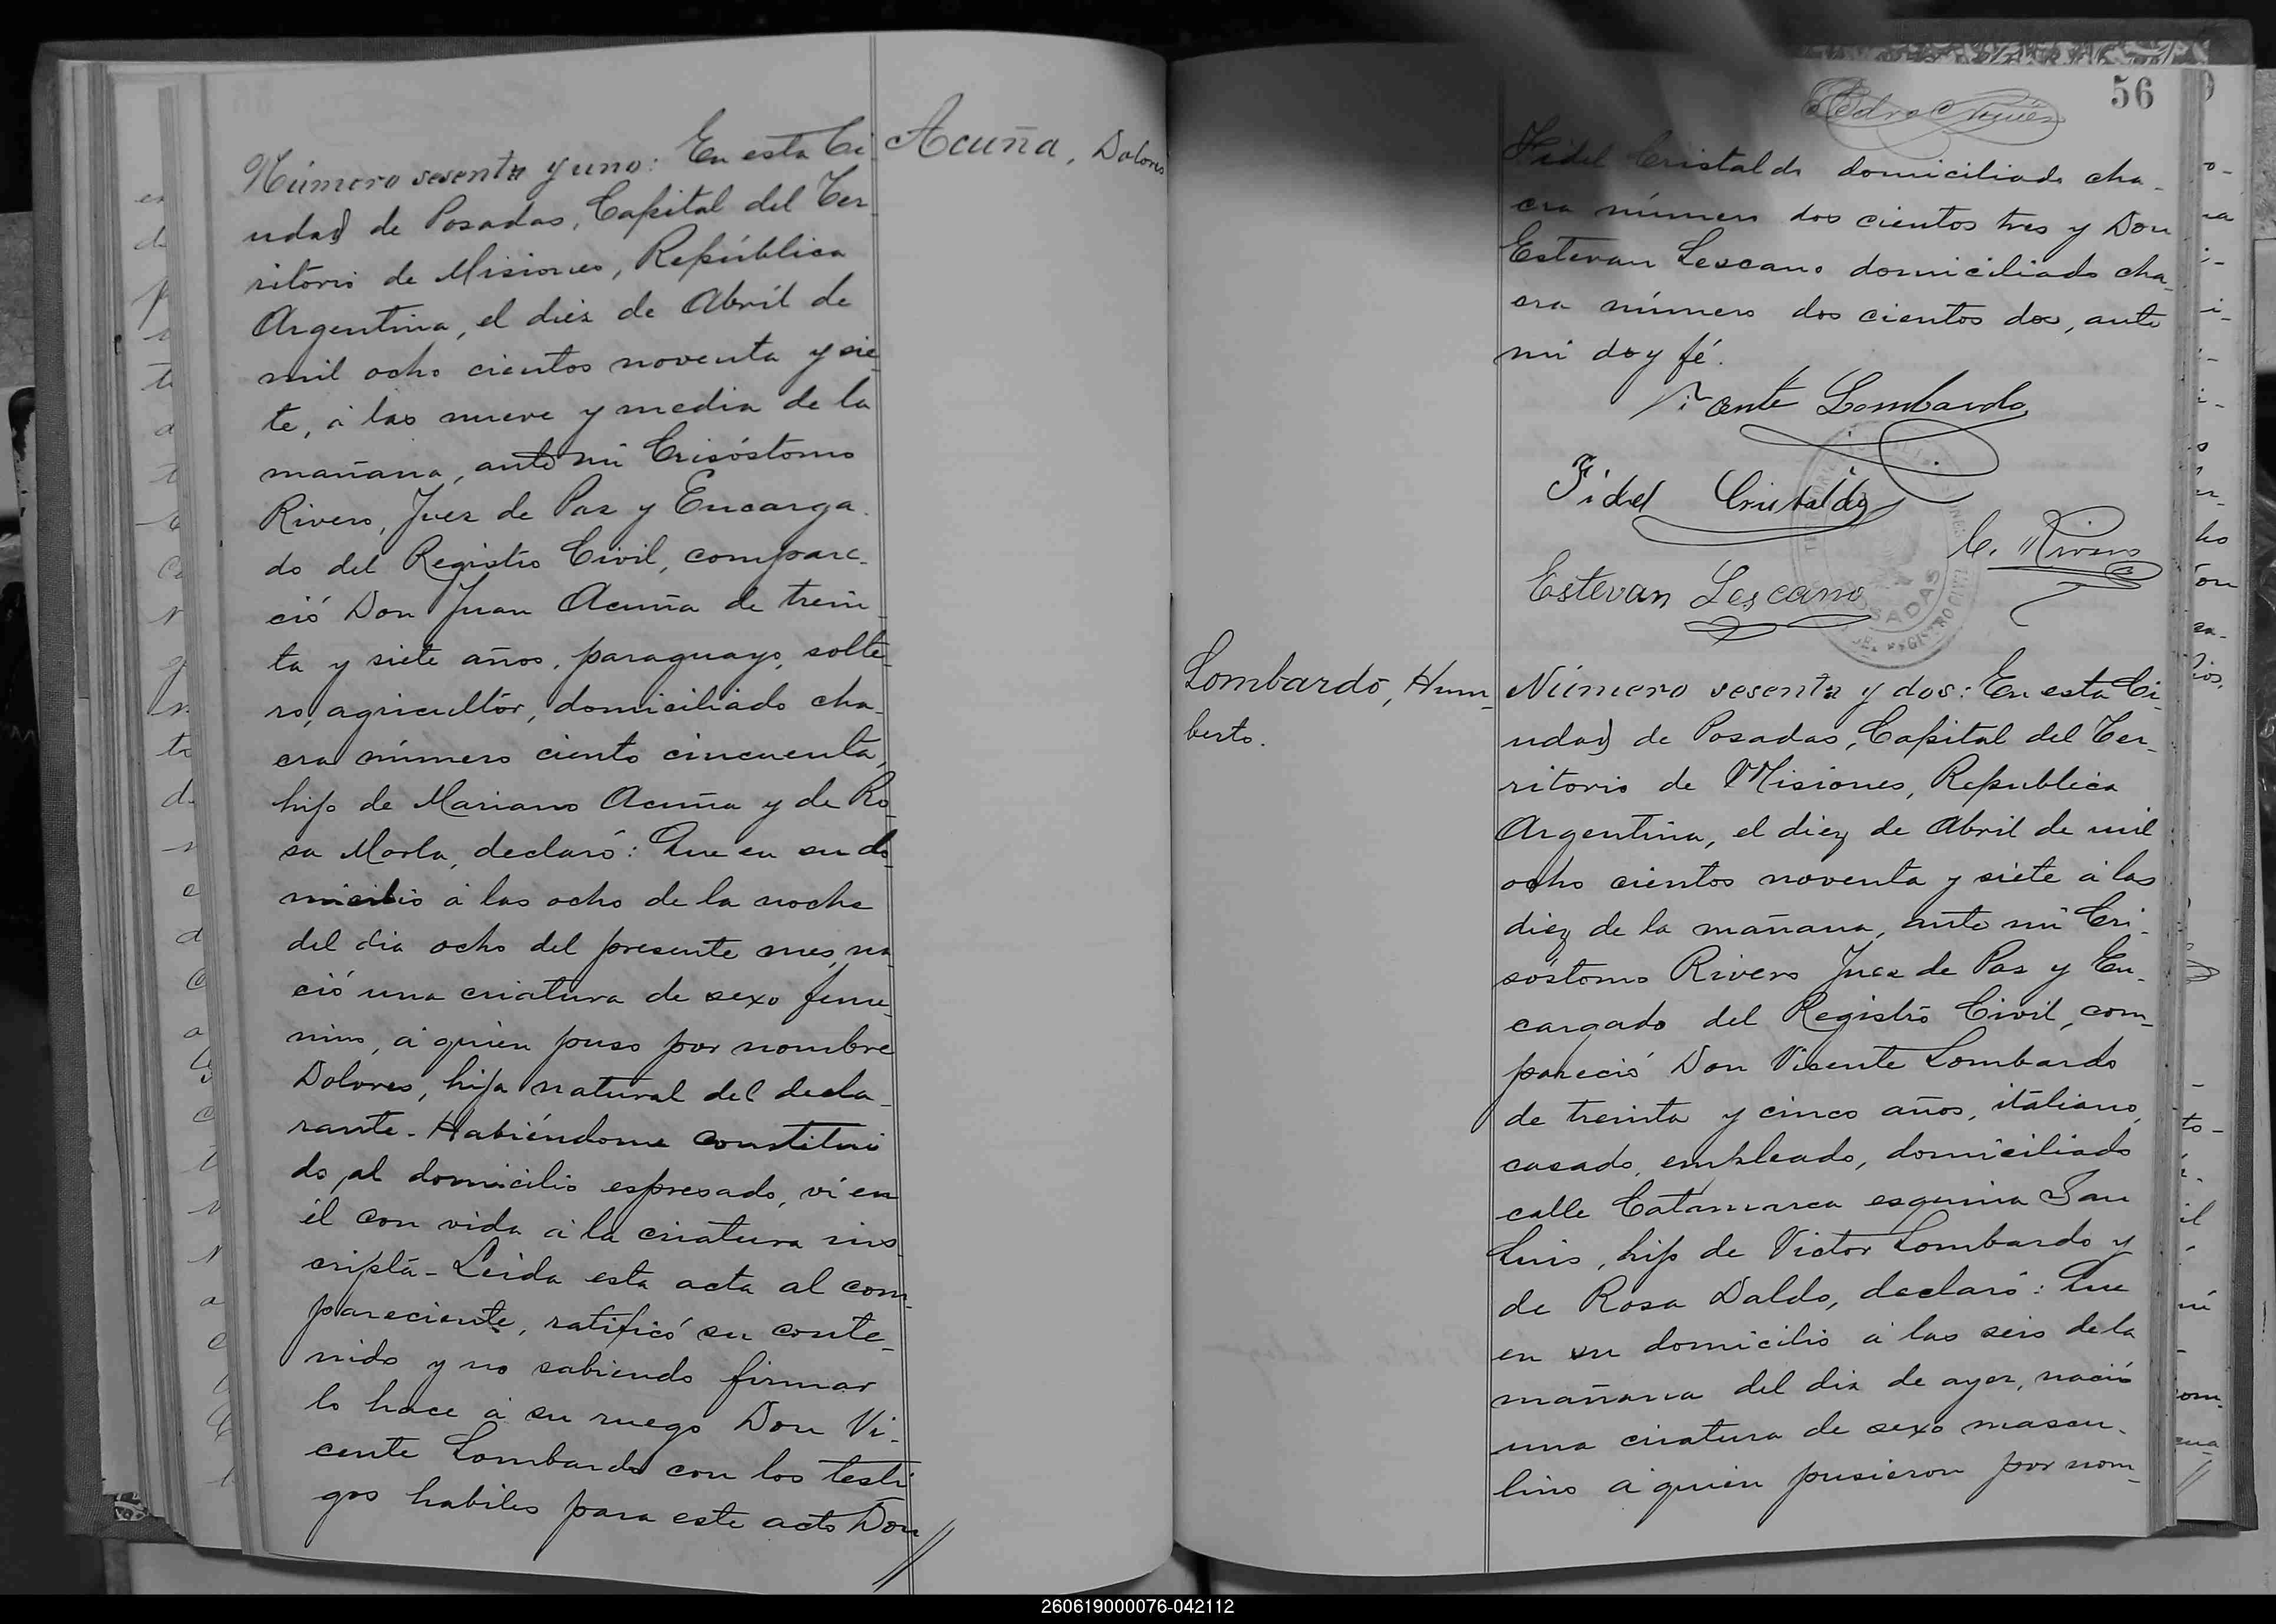 Acuña, Dolores
Número sesenta y uno: En esta Ci
udad de Posadas, Capital del Ter
ritorio de Misiones, República
Argentina, el diez de Abril de
mil ocho cientos noventa y sie
te, á las nueve y media de la
mañana, ante mi Crisóstomo
Rivero, Juez de Paz y Encarga
do del Registro Civil, compare-
ció Don Juan Acuña de trein
ta y siete años, paraguayo, solte
ro, agricultor, domiciliado cha-
cra número ciento cincuenta,
hijo de Mariano Acuña y de Ro
sa Morla, declaró: Que en su do
micilio á las ocho de la noche
del dia ocho del presente mes, na
ció una criatura de sexo feme
nino, á quien puso por nombre
Dolores, hija natural del decla-
rante. Habiéndome constitui
do al domicilio espresado, ví en
él con vida á la criatura ins
cripta - Leida esta acta al com-
pareciente, ratificó su conte-
nido y no sabiendo firmar
lo hace á su ruego Don Vi-
cente Lombardo con los testi
gos habiles para este acto Don
//
56
Fidel Cristaldo domiciliado cha-
cra número dos cientos tres y Don
Estevan Lescano domiciliado cha-
cra número dos cientos dos, ante
mi doy fé.
Vicente Lombardo
Fidel Cristaldo
C. Rivero
Estevan Lescano
POSADAS
REGISTRO CIVIL
Lombardo, Hum-
berto.
Número sesenta y dos: En esta Ci-
udad de Posadas, Capital del Ter-
ritorio de Misiones, Republica
Argentina, el diez de Abril de mil
ocho cientos noventa y siete á las
diez de la mañana, ante mi Cri-
sóstomo Rivero Juez de Paz y En-
cargado del Registro Civil, com-
pareció Don Vicente Lombardo
de treinta y cinco años, italiano,
casado, empleado, domiciliado
calle Catamarca esquina San
Luis, hijo de Victor Lombardo y
de Rosa Daldo, declaró: Que
en su domicilio á las seis de la
mañana del dia de ayer, nació
una criatura de sexo mascu-
lino á quien pusieron por nom-
260619000076-042112